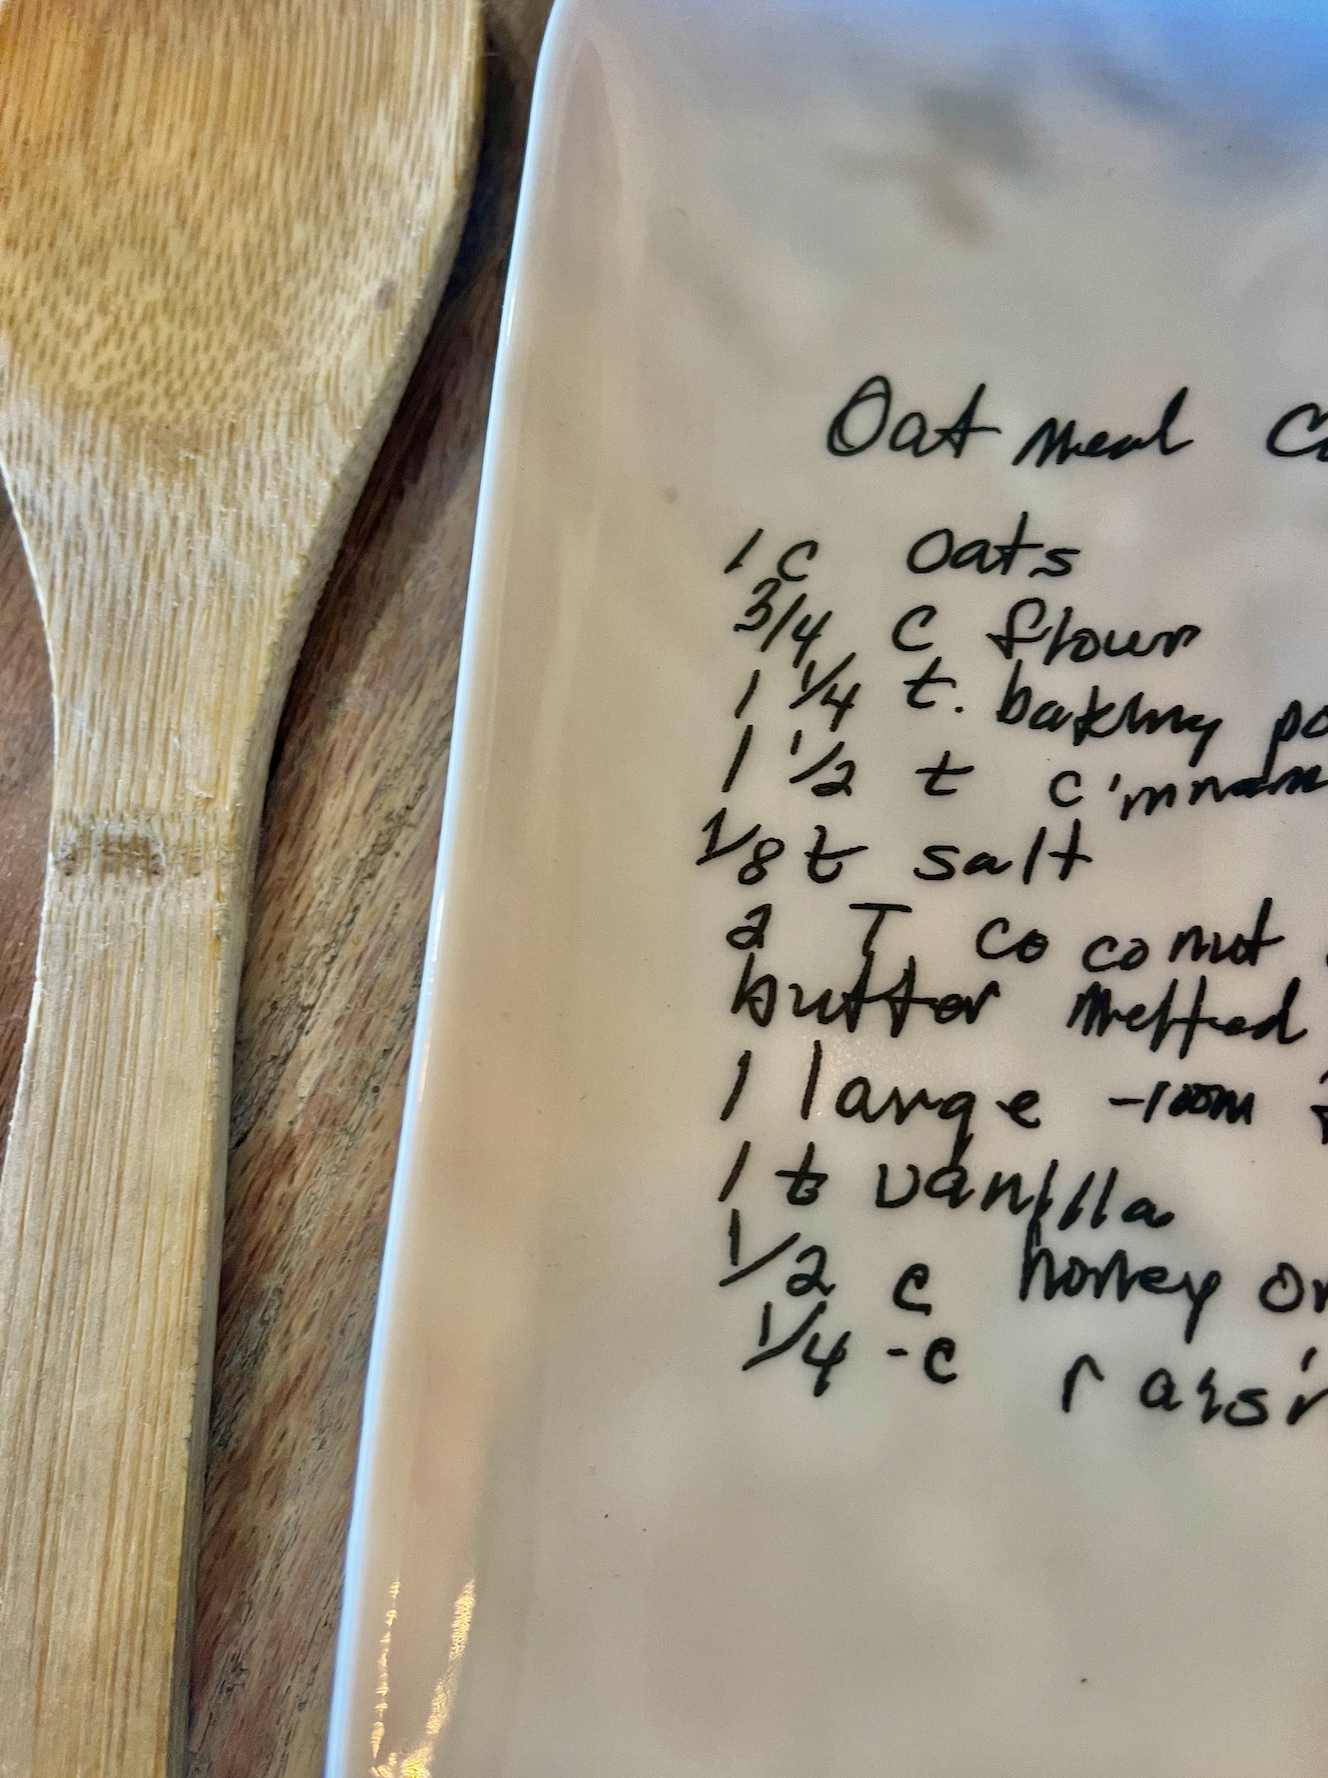 Oat meal C
1 c oats
3/4 c flour
1 1/4 t. baking po
1 1/2 t cinnam
1/8 t salt
2 T coconut
butter melted
1 large - room
1 t vanilla
1/2 c honey or
1/4 - c raisi